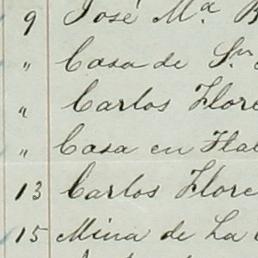 9 José Mª B
" Casa de Sn
" Carlos Flore
" Casa en Hal
13 Carlos Flore
15 Mina de La